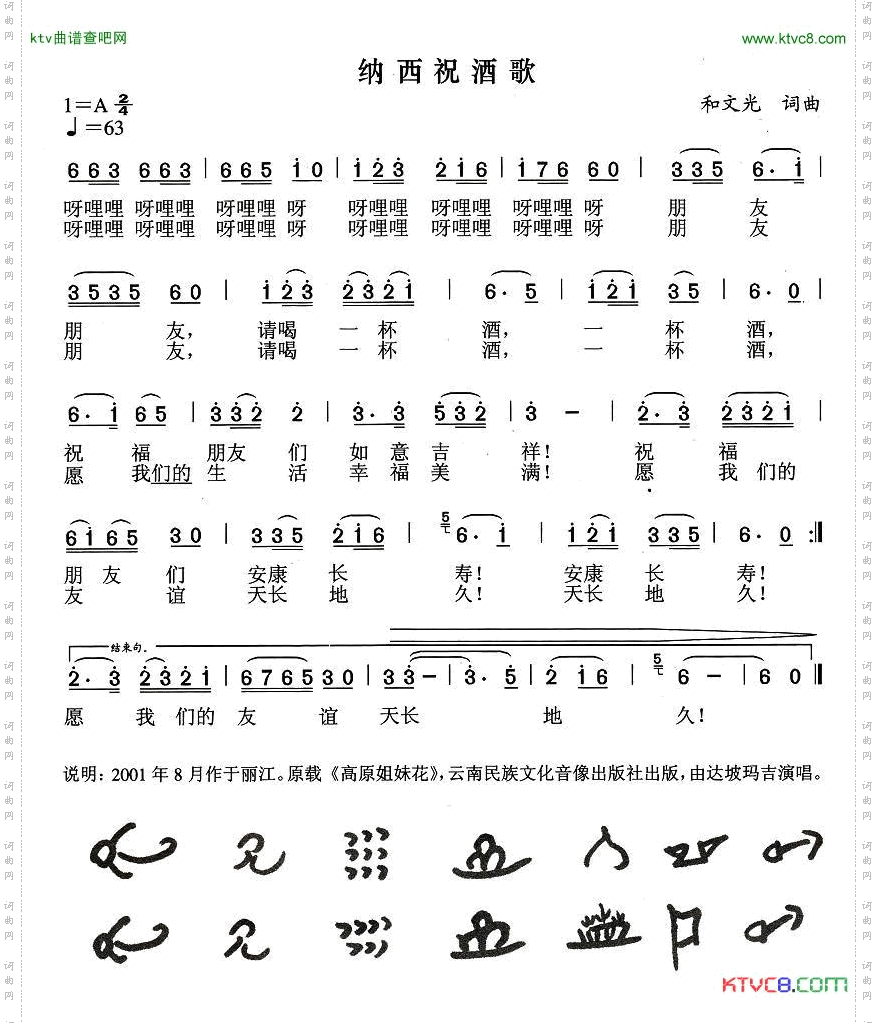 ktv曲谱查吧网
www.ktvc8.com
纳西祝酒歌
1=A 2/4
和文光 词曲
♩=63
6 6 3 6 6 3 | 6 6 5 i 0 | i 2 3 2 1 6 | i 7 6 6 0 | 3 3 5 6· i |
呀哩哩 呀哩哩 呀哩哩 呀 呀哩哩 呀哩哩 呀哩哩 呀 朋 友
呀哩哩 呀哩哩 呀哩哩 呀 呀哩哩 呀哩哩 呀哩哩 呀 朋 友
3 5 3 5 6 0 | i 2 3 2 3 2 i | 6· 5 | i 2 i 3 5 | 6· 0 |
朋 友, 请喝 一 杯 酒, 一 杯 酒,
朋 友, 请喝 一 杯 酒, 一 杯 酒,
6· i 6 5 | 3 3 2 2 | 3· 3 5 3 2 | 3 – | 2· 3 2 3 2 i |
祝 福 朋友 们 如 意 吉 祥! 祝 福
愿 我们的 生 活 幸 福 美 满! 愿 我 们的
6 i 6 5 3 0 | 3 3 5 2 i 6 | 5 6· i | i 2 i 3 3 5 | 6· 0 :‖
朋 友 们 安康 长 寿! 安康 长 寿!
友 谊 天长 地 久! 天长 地 久!
结束句。
2· 3 2 3 2 i | 6 7 6 5 3 0 | 3 3 – | 3· 5 | 2 i 6 | 5 6 – | 6 0 ‖
愿 我 们的 友 谊 天长 地 久!
说明:2001年8月作于丽江。原载《高原姐妹花》,云南民族文化音像出版社出版,由达坡玛吉演唱。
KTVC8.COM
词曲网